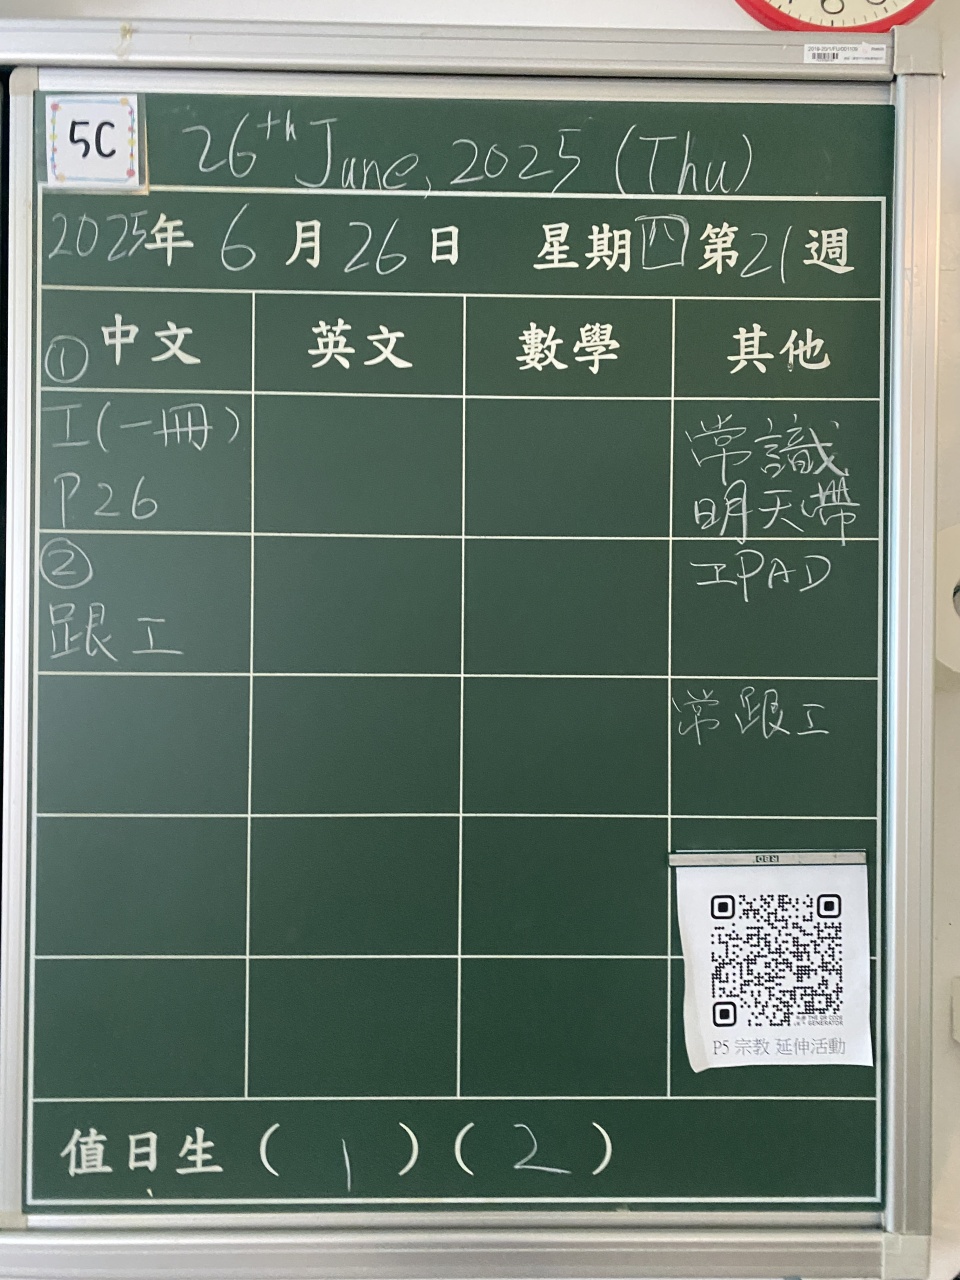 5C
26th June, 2025 (Thu)
2025年 6 月 26 日 星期四第21週
①中文 英文 數學 其他
工(一冊)
P26
常識
明天帶
IPAD
②
跟工
常跟工
P5 宗教 延伸活動
值日生 ( 1 ) ( 2 )